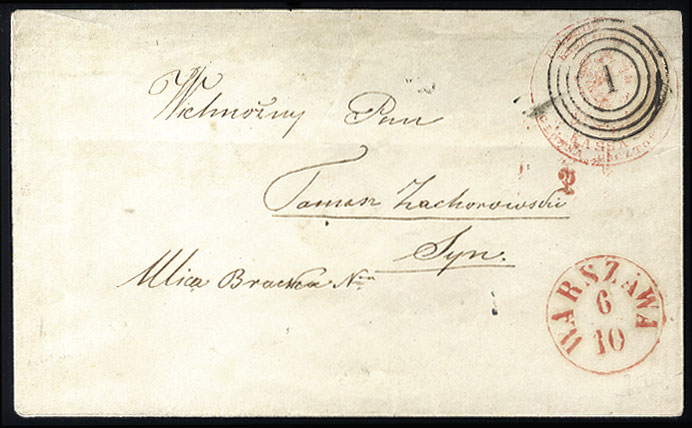 1
KASSA
Wielmożny Pan
2
Tomasz Zachorowski
Syn.
Ulica Bracka Nr
WARSZAWA
6
10